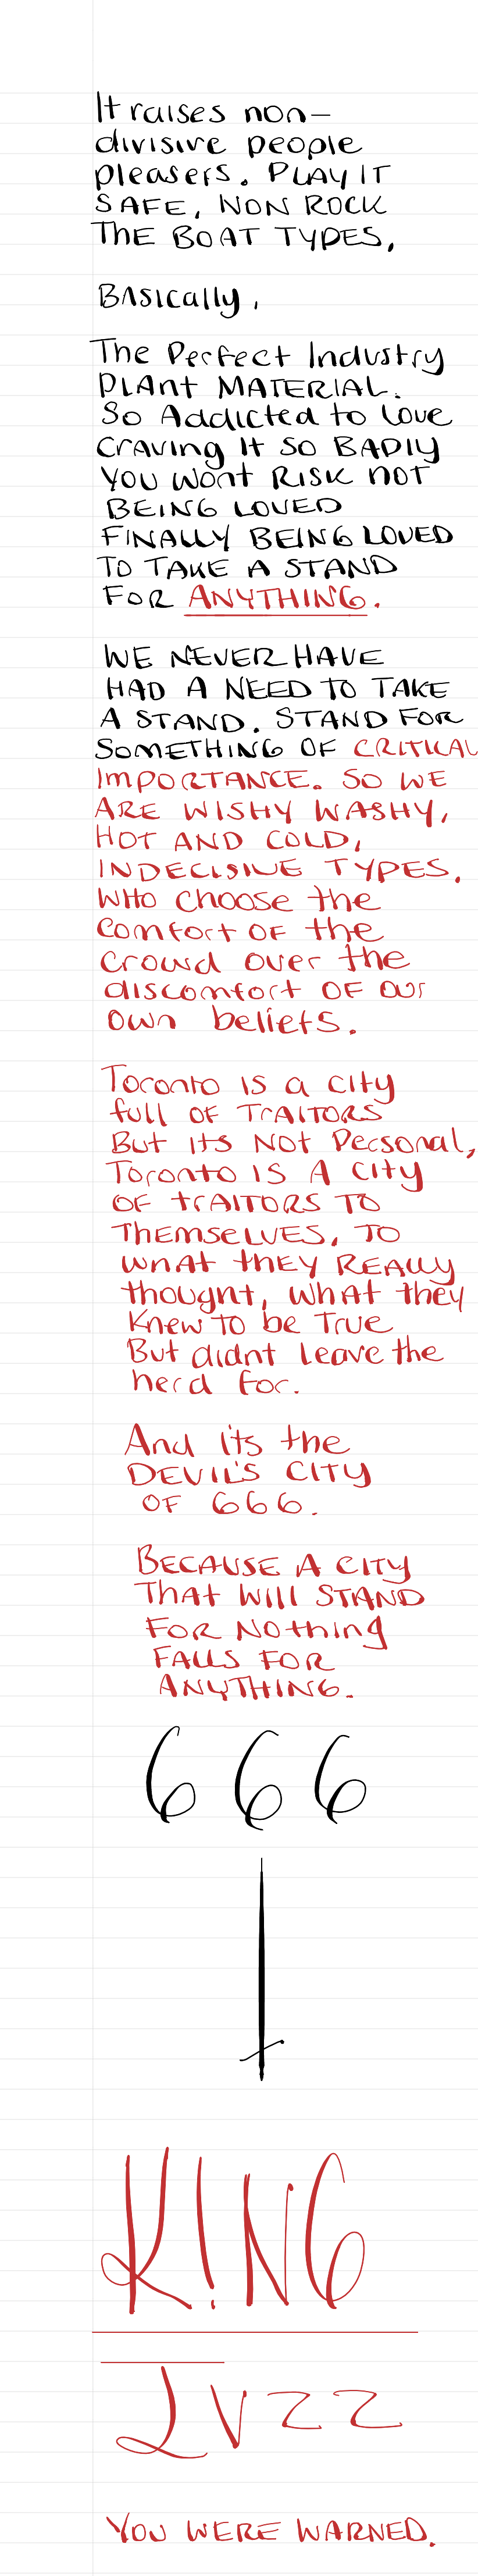 It raises non-
divisive people
pleasers. PLAY IT
SAFE, NON ROCK
THE BOAT TYPES.
BASICALLY,
The Perfect Industry
PLANT MATERIAL.
So Addicted to love
craving It SO BADLY
YOU WONT RISK NOT
BEING LOVED
FINALLY BEING LOVED
TO TAKE A STAND
FOR ANYTHING.
WE NEVER HAVE
HAD A NEED TO TAKE
A STAND. STAND FOR
SOMETHING OF CRITICAL
IMPORTANCE. SO WE
ARE WISHY WASHY,
HOT AND COLD,
INDECISIVE TYPES.
WHO choose the
comfort OF the
crowd over the
discomfort OF our
own beliefs.
Toronto IS a city
full OF TRAITORS
But Its Not Personal,
Toronto IS A City
OF TRAITORS TO
THEMSELVES, TO
WHAT THEY REALLY
thought, WHAT they
knew TO be True
But didnt leave the
herd for.
And its the
DEVIL'S CITY
OF 666.
BECAUSE A CITY
THAT WILL STAND
FOR NOthing
FALLS FOR
ANYTHING.
666
K!NG
LVZZ
YOU WERE WARNED.